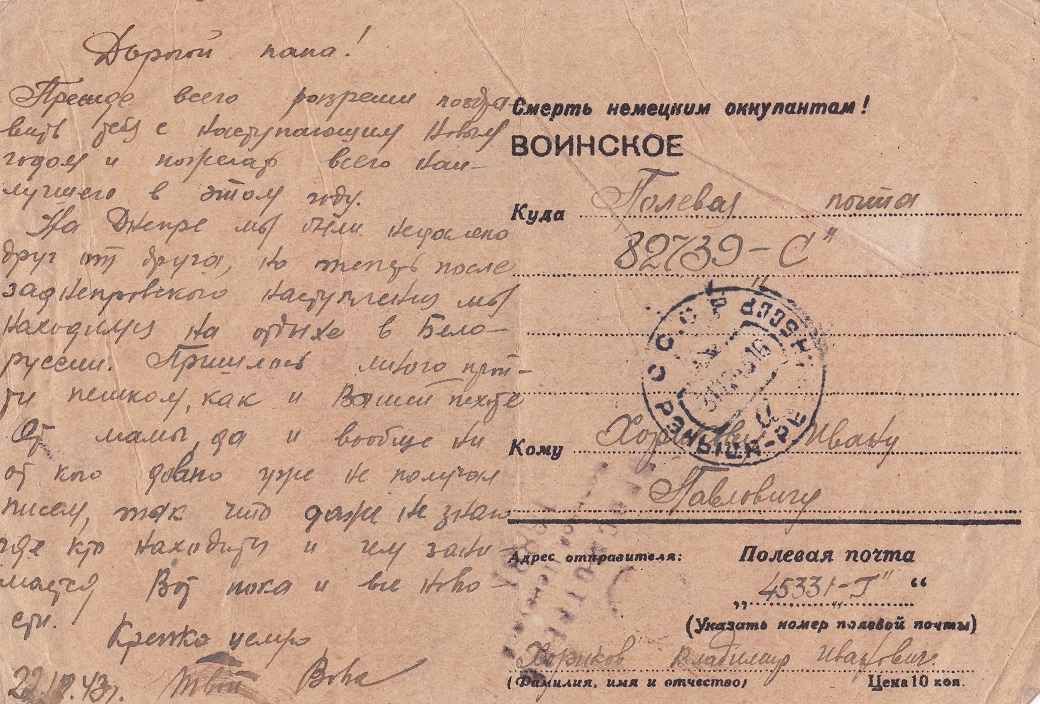 Дорогой папа!
Прежде всего разреши поздра
вить тебя с наступающим Новым
годом и пожелать всего наи-
лучшего в этом году.
На Днепре мы были недалеко
друг от друга, но теперь после
заднепровского наступления мы
находимся на отдыхе в Бело-
руссии. Пришлось много прой-
ти пешком, как и Вашей пехоте
От мамы, да и вообще ни
от кого давно уже не получал
писем, так что даже не знаю
где кто находится и чем зани-
мается Вот пока и все ново-
сти.
Крепко целую
Твой Вова
22.12.43г.
Смерть немецким оккупантам!
ВОИНСКОЕ
Куда Полевая почта
82739-С"
СССР
Кому Ивану
Павловичу
Адрес отправителя: Полевая почта
„45331-Г" “
(Указать номер полевой почты)
Хориков Владимир Иванович
(Фамилия, имя и отчество) Цена 10 коп.